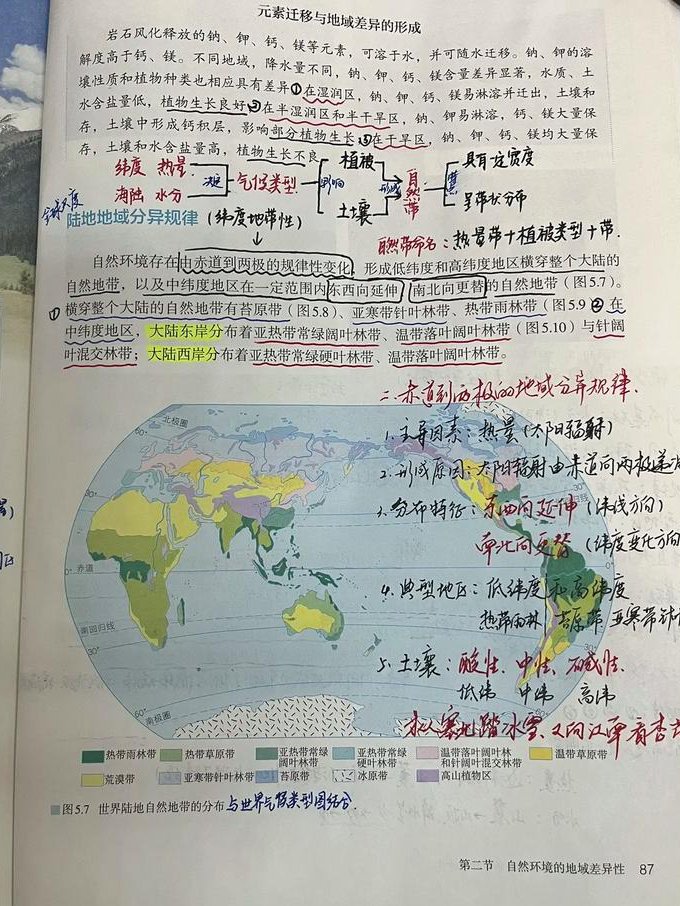 元素迁移与地域差异的形成
岩石风化释放的钠、钾、钙、镁等元素，可溶于水，并可随水迁移。钠、钾的溶
解度高于钙、镁。不同地域，降水量不同，钠、钾、钙、镁含量差异显著，水质、土
壤性质和植物种类也相应具有差异①在湿润区，钠、钾、钙、镁易淋溶并迁出，土壤和
水含盐量低，植物生长良好②在半湿润区和半干旱区，钠、钾易淋溶，钙、镁大量保
存，土壤中形成钙积层，影响部分植物生长③在干旱区，钠、钾、钙、镁均大量保
存，土壤和水含盐量高，植物生长不良
纬度 热量
海陆 水分
决定
气候类型
影响
植被
土壤
形成
自然带
具有一定宽度
呈带状分布
陆地地域分异规律（纬度地带性）
自然带命名：热量带+植被类型+带.
自然环境存在由赤道到两极的规律性变化，形成低纬度和高纬度地区横穿整个大陆的
自然地带，以及中纬度地区在一定范围内东西向延伸、南北向更替的自然地带（图5.7）。
①横穿整个大陆的自然地带有苔原带（图5.8）、亚寒带针叶林带、热带雨林带（图5.9 ②在
中纬度地区，大陆东岸分布着亚热带常绿阔叶林带、温带落叶阔叶林带（图5.10）与针阔
叶混交林带；大陆西岸分布着亚热带常绿硬叶林带、温带落叶阔叶林带。
二.赤道到两极的地域分异规律.
1.主导因素：热量（太阳辐射）
2.形成原因：太阳辐射由赤道向两极递
3.分布特征：东西向延伸（纬线方向）
南北向更替（纬度变化方向
4.典型地区：低纬度和高纬度
热带雨林 苔原带 亚寒带针
5.土壤：酸性、中性、碱性.
低纬 中纬 高纬
北极圈
60°
30°
0° 赤道
0°
南回归线
30°
30°
60°
60°
南极圈
热带雨林带
热带草原带
亚热带常绿阔叶林带
亚热带常绿硬叶林带
温带落叶阔叶林和针阔叶混交林带
温带草原带
荒漠带
亚寒带针叶林带
苔原带
冰原带
高山植物区
图5.7 世界陆地自然地带的分布 与世界气候类型图结合.
第二节 自然环境的地域差异性 87